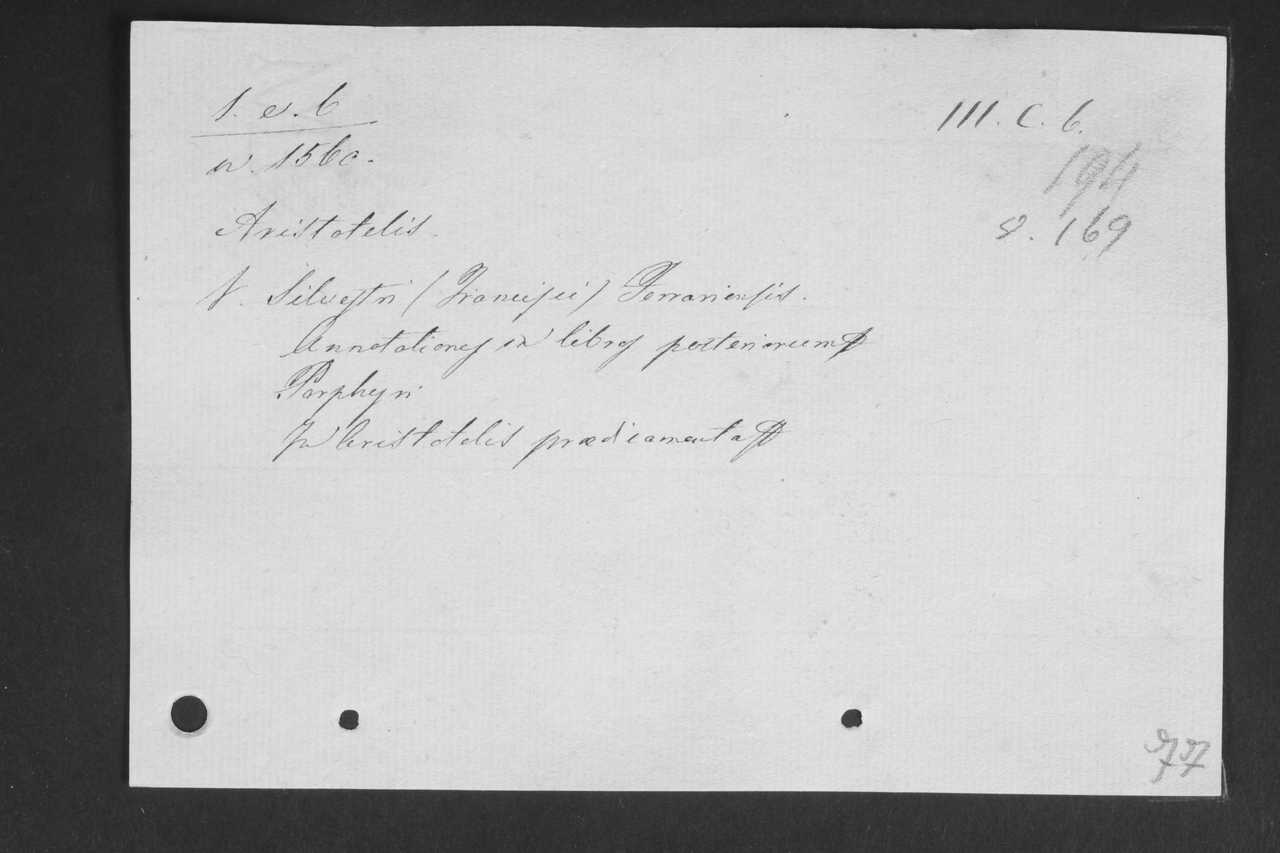 1. e. 6
III. C. 6.
n. 1560.
194
Aristotelis.
8. 169
V. Silvestri (Francisci) Ferrariensis.
Annotationes in libros posteriorum
Porphyri
In Aristotelis prædicamenta
77